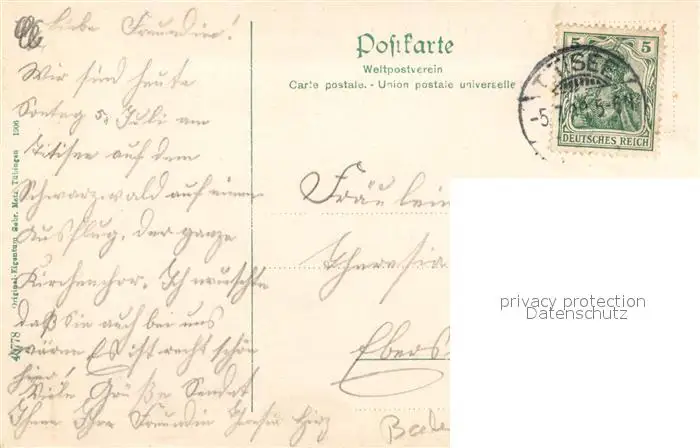 Liebe Freundin!
Wir sind heute
Sontag 5. Juli am
Titisee auf dem
Schwarzwald auf einem
Ausflug, der ganze
Kirchenchor. Ich wünschte
daß Sie auch bei uns
wären Es ist recht schön
hier! Viele Grüße Sendet
Ihnen Ihre Freundin
Postkarte
Weltpostverein
Carte postale. - Union postale universelle
5 5
TITISEE
DEUTSCHES REICH
Fräulein
Theresia
Ebers
Bade
Original-Eigentum Gebr. Metz, Tübingen 1906
privacy protection
Datenschutz